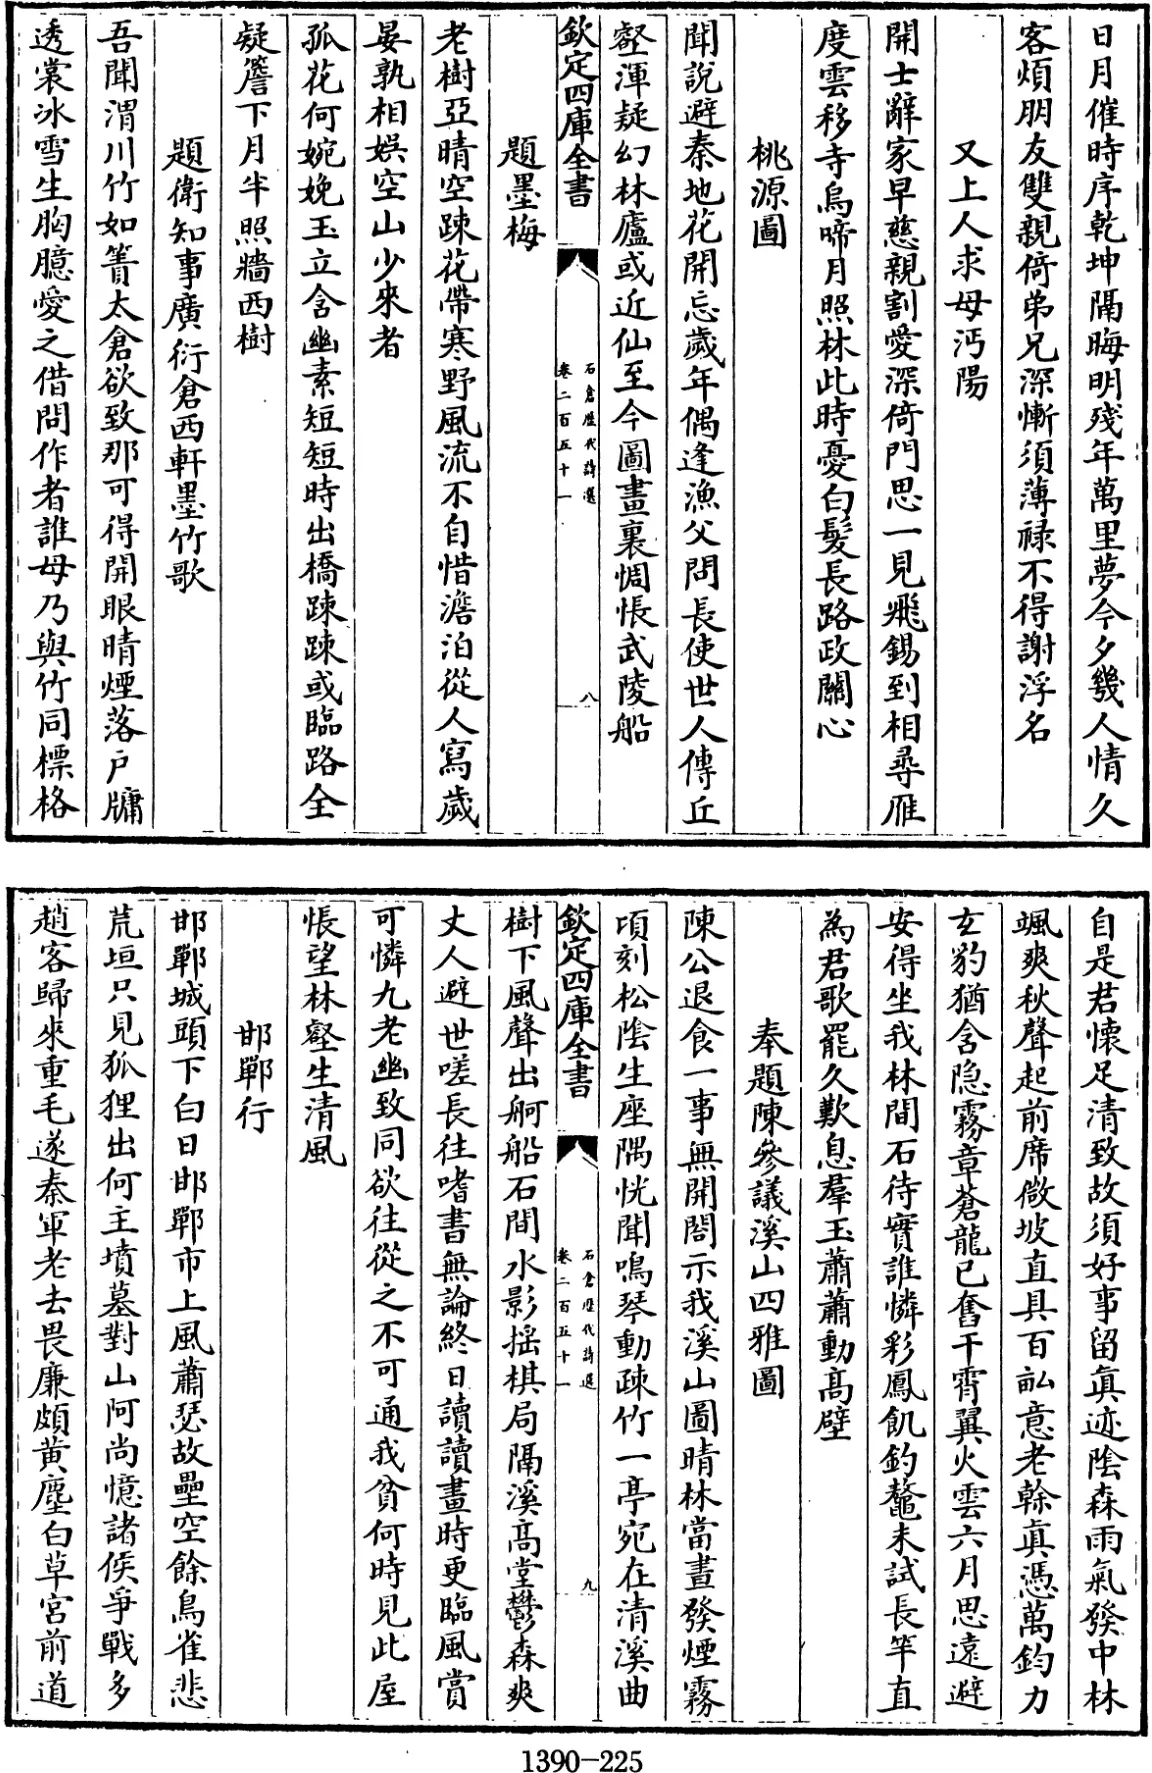 日月催時序乾坤隔晦明殘年萬里夢今夕幾人情久
客煩朋友雙親倚弟兄深慚須薄祿不得謝浮名
又上人求母沔陽
開士辭家早慈親割愛深倚門思一見飛錫到相尋雁
度雲移寺烏啼月照林此時憂白髮長路政關心
桃源圖
聞說避秦地花開忘歲年偶逢漁父問長使世人傳丘
壑渾疑幻林廬或近仙至今圖畫裏惆悵武陵船
欽定四庫全書
石倉歷代詩選
卷二百五十一
八
題墨梅
老樹亞晴空踈花帶寒野風流不自惜澹泊從人寫歲
晏孰相娛空山少來者
孤花何婉娩玉立含幽素短短時出橋踈踈或臨路全
疑簷下月半照牆西樹
題衛知事廣衍倉西軒墨竹歌
吾聞渭川竹如簣太倉欲致那可得開眼晴煙落戶牖
透裳冰雪生胸臆愛之借問作者誰毋乃與竹同標格
自是君懷足清致故須好事留真迹陰森雨氣發中林
颯爽秋聲起前席微坡直具百畝意老榦真憑萬鈞力
玄豹猶含隐霧章蒼龍已奮干霄翼火雲六月思遠避
安得坐我林間石待實誰憐彩鳳飢釣鼇未試長竿直
為君歌罷久歎息羣玉蕭蕭動高壁
奉題陳參議溪山四雅圖
陳公退食一事無開閤示我溪山圖晴林當晝發煙霧
頃刻松陰生座隅恍聞鳴琴動疎竹一亭宛在清溪曲
欽定四庫全書
石倉歷代詩選
卷二百五十一
九
樹下風聲出舸船石間水影揺棋局隔溪高堂鬱森爽
丈人避世嗟長往嗜書無論終日讀讀畫時更臨風賞
可憐九老幽致同欲往從之不可通我貧何時見此屋
悵望林壑生清風
邯鄲行
邯鄲城頭下白日邯鄲市上風蕭瑟故壘空餘鳥雀悲
荒垣只見狐狸出何主墳墓對山阿尚憶諸侯爭戰多
趙客歸來重毛遂秦軍老去畏廉頗黄塵白草宮前道
1390-225